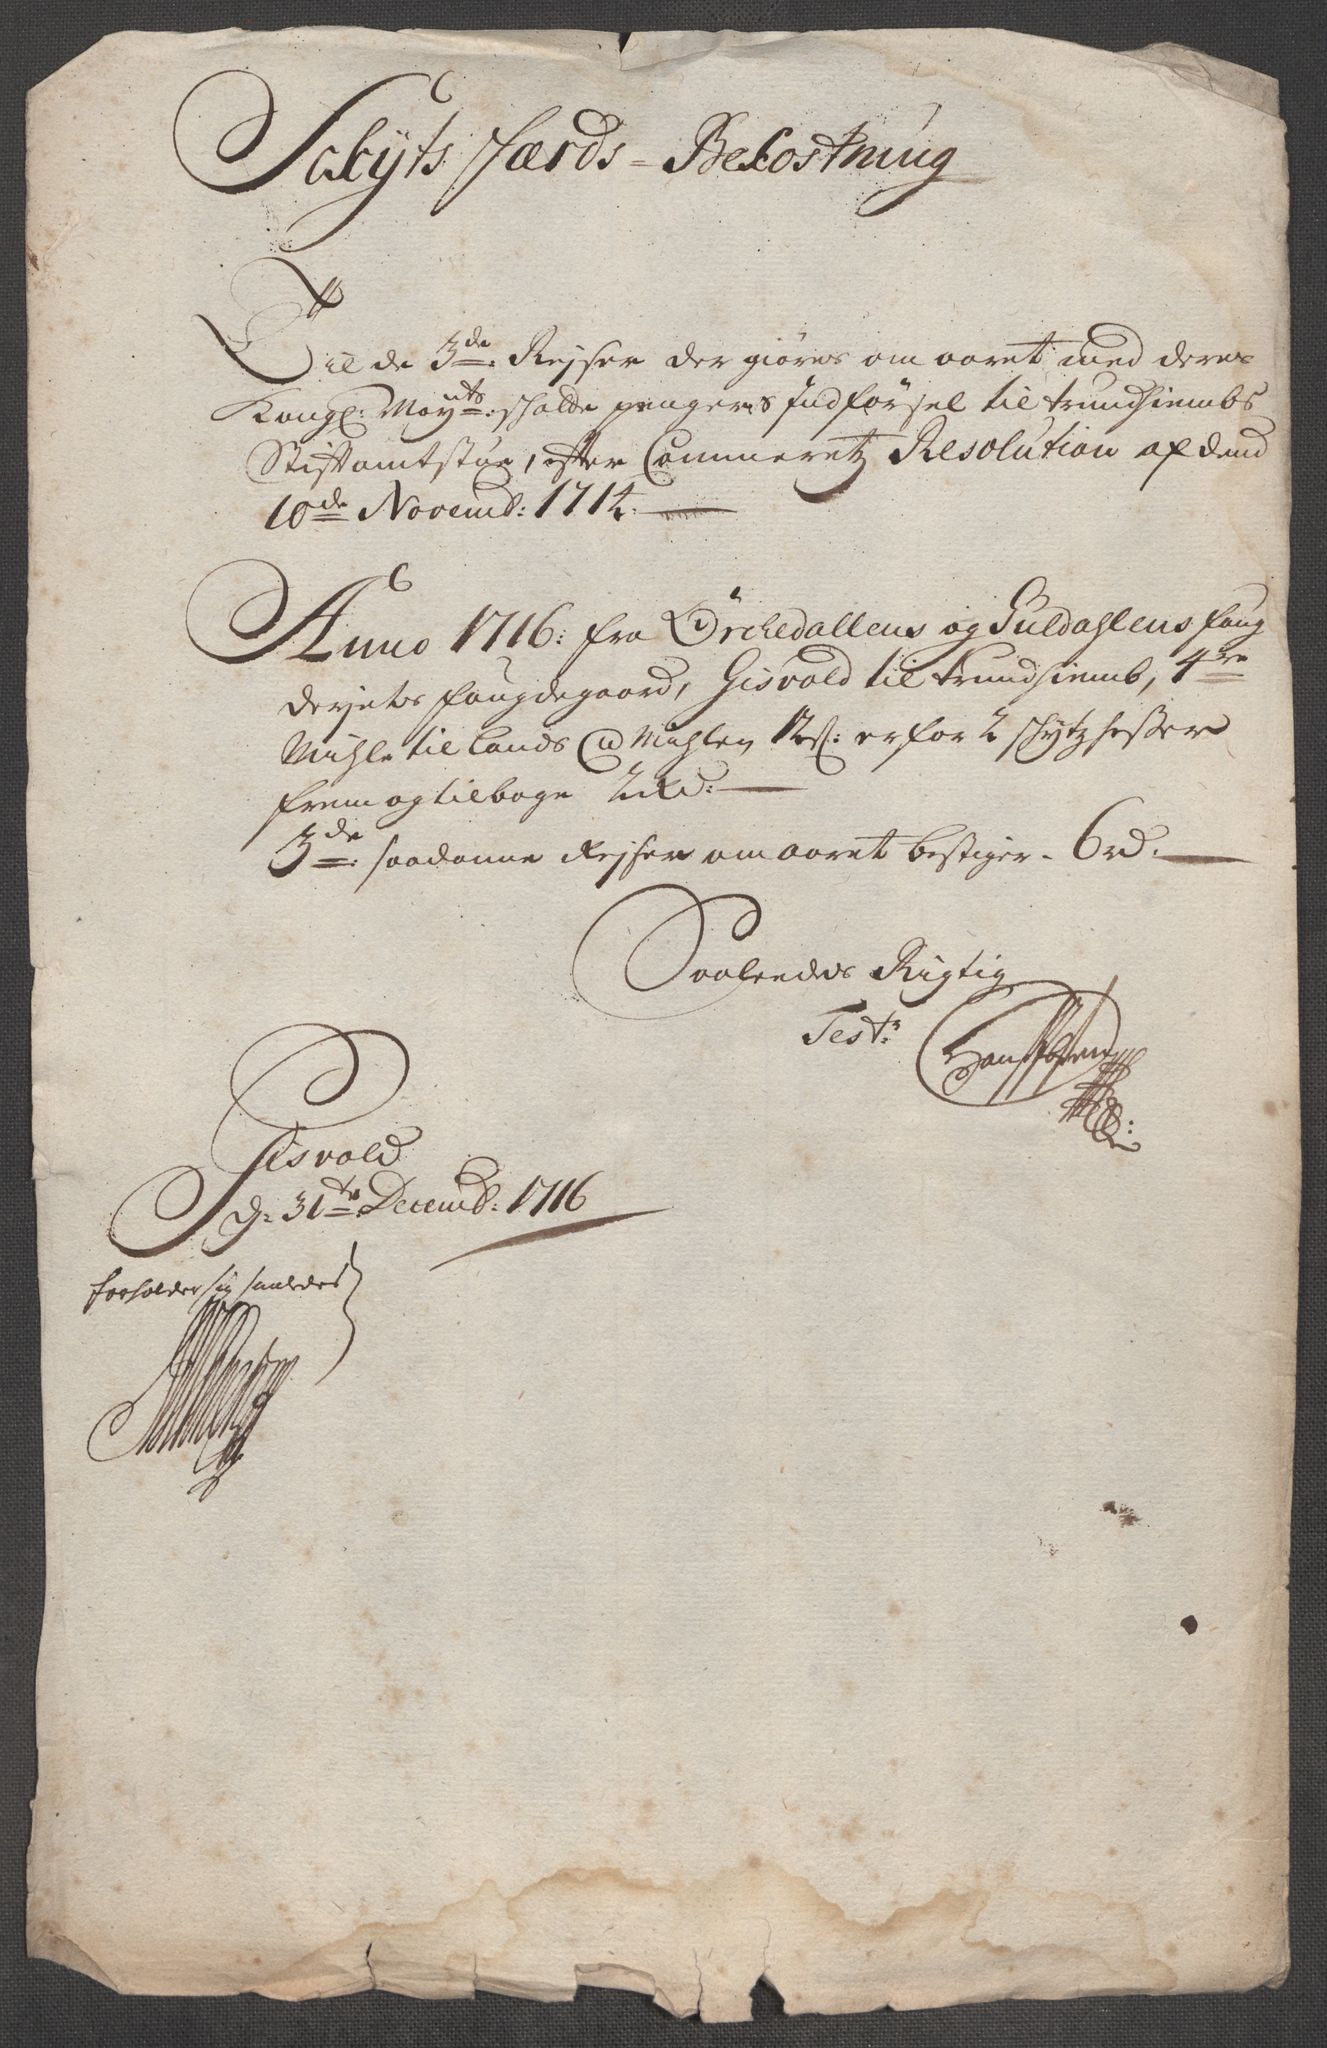 Schyts færds = Bekostning
Til de 3de: Rejser der giøres om aaret med deres
Kongl: Mayts: schatte pengers Indførsel til trundhiembs
Stiftamtstue, efter Cammeretz Resolution af dend
10de Novemb: 1714.
Anno 1716: fra Ørchedallens og Guldahlens foug
derjets fougdegaard, Gisvold til trundhiemb, 4re
Miihle til lands a Miihlen 12s: er for 2 schytz hester
frem og tilbage 2 Rd:
3de: saadanne Rejser om aaret bestiger - 6 rd.
Saaledes Rigtig
Test:
Gisvold
d: 31te Decemb: 1716
forholder sig saaledes